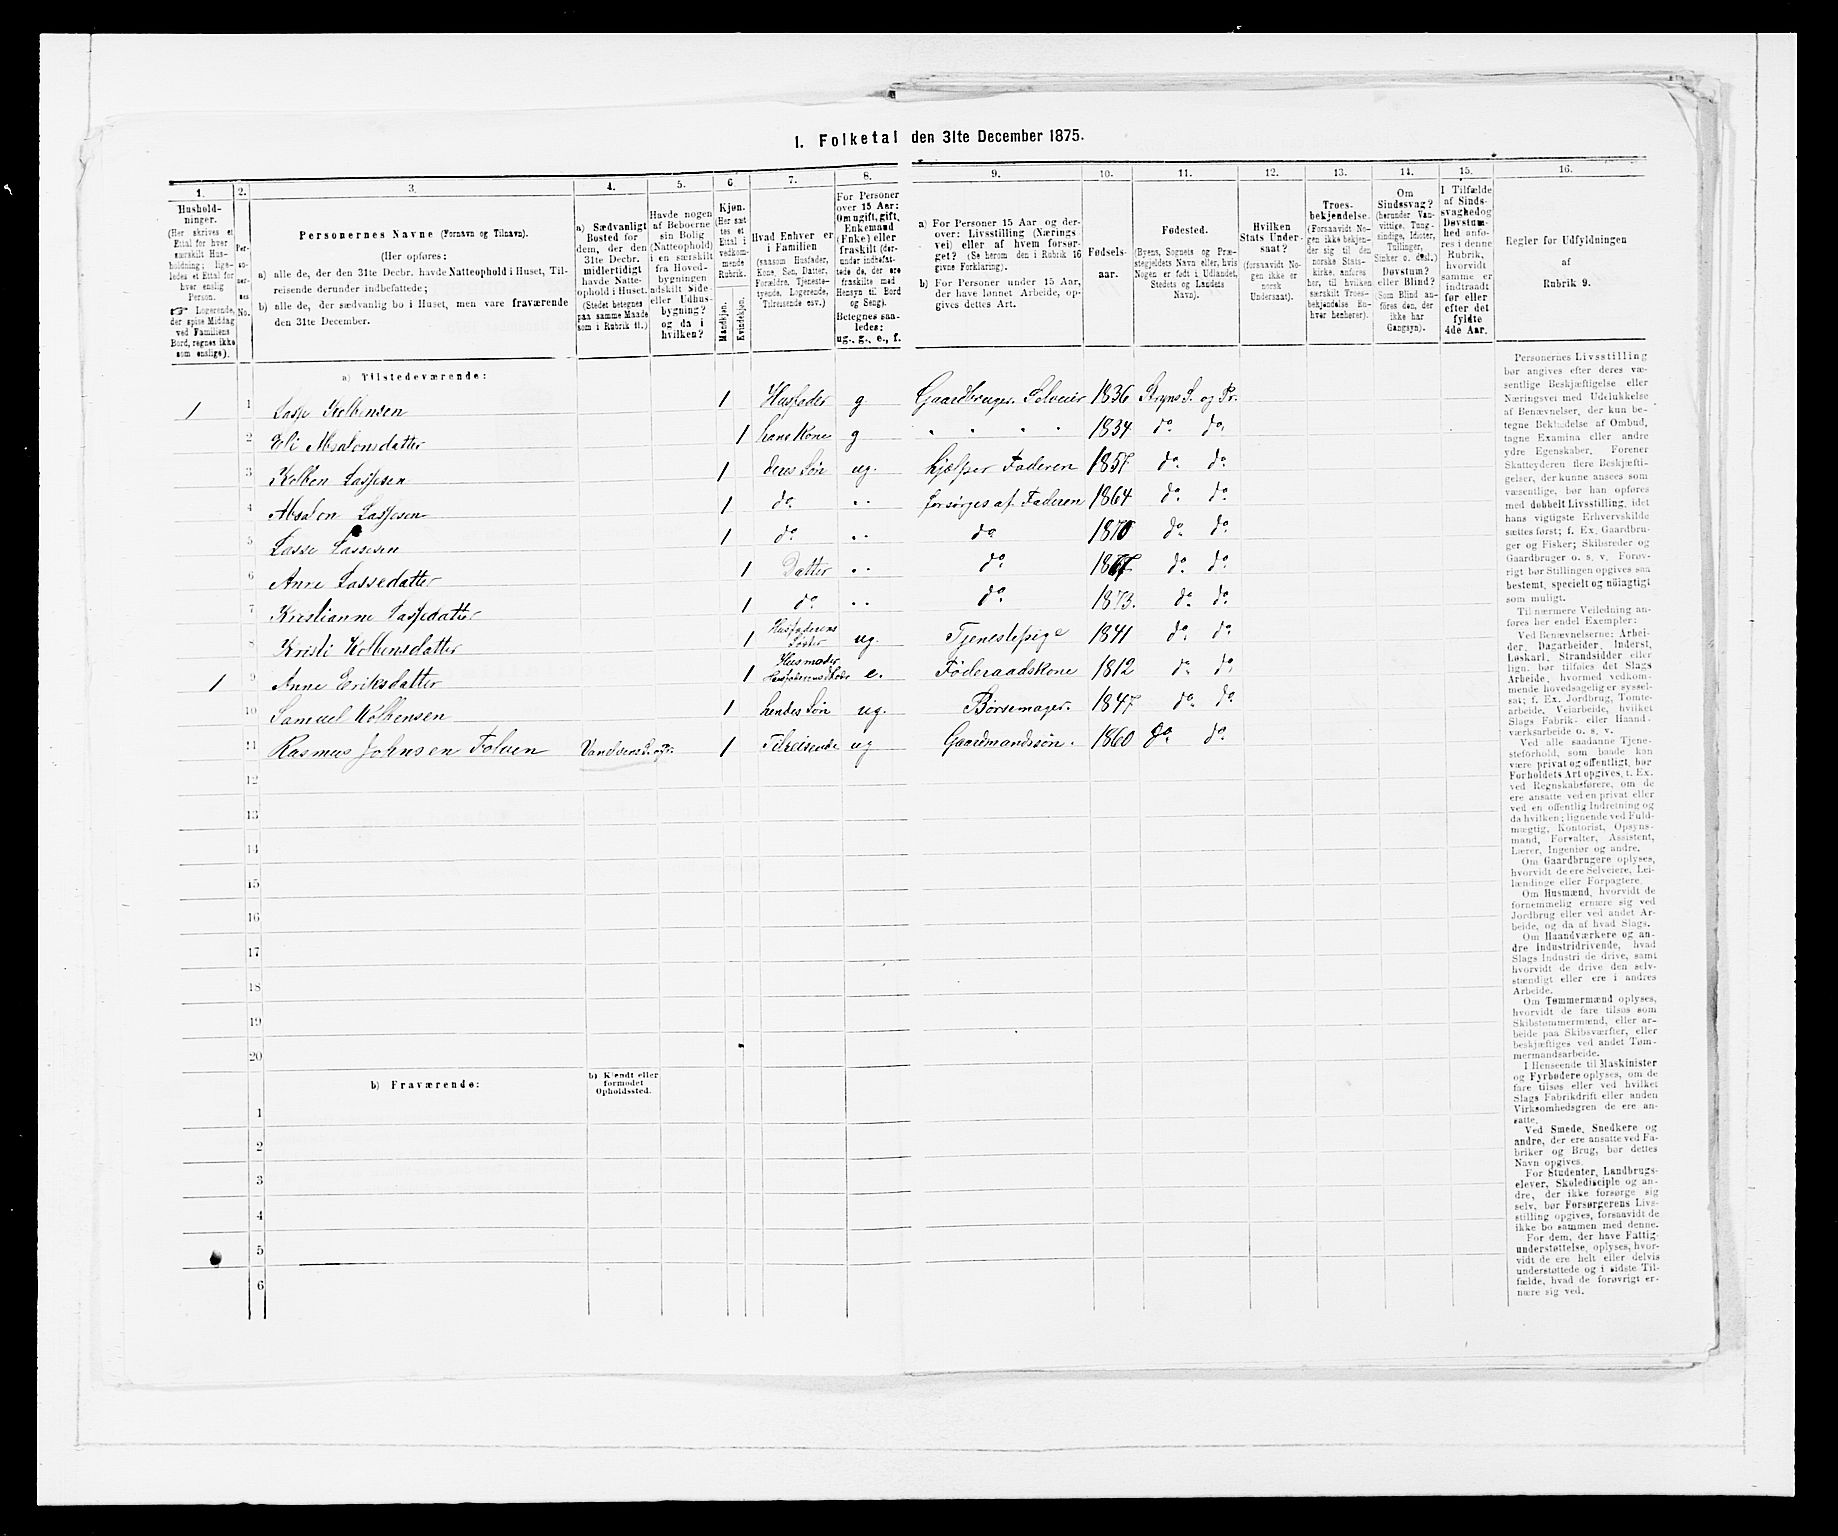 1. Folketal den 31te December 1875.
1. 2. 3. 4. 5. 6 7. 8. 9. 10. 11. 12. 13. 14. 15. 16.
Hushold-
ninger.
(Her skrives et
Ettal for hver
særskilt Hus-
holdning; lige-
ledes et Ettal for
hver enslig
Person.
☞ Logerende,
der spise Middag
ved Familiens
Bord, regnes ikke
som enslige).
Per-
so-
ner-
nes
No.
Personernes Navne (Fornavn og Tilnavn).
(Her opføres:
a) alle de, der den 31te Decbr. havde Natteophold i Huset, Til-
reisende derunder indbefattede;
b) alle de, der sædvanlig bo i Huset, men vare fraværende
den 31te December.
a) Sædvanligt
Bosted for
dem, der den
31te Decbr.
midlertidigt
havde Natte-
ophold i Huset.
(Stedet betegnes
paa samme Maade
som i Rubrik 11.)
Havde nogen
af Beboerne
sin Bolig
(Natteophold)
i en særskilt
fra Hoved-
bygningen
adskilt Side-
eller Udhus-
bygning?
og da i
hvilken?
Kjøn.
(Her sæt-
tes et
Ettal i
vedkom-
mende
Rubrik.
Mandkjøn.
Kvindekjøn.
Hvad Enhver er
i Familien
(saasom Husfader,
Kone, Søn, Datter,
Forældre, Tjeneste-
tyende, Logerende,
Tilreisende osv.)
For Personer
over 15 Aar:
Om ugift, gift,
Enkemand
(Enke) eller
fraskilt (der-
under indbefat-
tede de, der ere
fraskilte med
Hensyn til Bord
og Seng).
Betegnes saa-
ledes:
ug., g., e., f.
a) For Personer 15 Aar og der-
over: Livsstilling (Nærings-
vei) eller af hvem forsør-
get? (Se herom den i Rubrik 16
givne Forklaring).
b) For Personer under 15 Aar,
der have lønnet Arbeide, op-
gives dettes Art.
Fødsels-
aar.
Fødested.
(Byens, Sognets og Præ-
stegjeldets Navn eller, hvis
Nogen er født i Udlandet,
Stedets og Landets
Navn).
Hvilken
Stats Under-
saat?
(forsaavidt No-
gen ikke er
norsk
Undersaat).
Troes-
bekjendelse.
(Forsaavidt No-
gen ikke bekjen-
der sig til den
norske Stats-
kirke, anføres
her, til hvilken
særskilt Troes-
bekjendelse En-
hver henhører).
Om
Sindssvag?
(herunder Van-
vittige, Tung-
sindige, Idioter,
Tullinger,
Sinker o. desl.)
Døvstum?
eller Blind?
(Som Blind an-
føres den, der
ikke har
Gangsyn).
I Tilfælde
af Sinds-
svaghed og
Døvstum-
hed anfø-
res i denne
Rubrik,
hvorvidt
samme er
indtraadt
før eller
efter det
fyldte
4de Aar.
Regler for Udfyldningen
af
Rubrik 9.
a) Tilstedeværende:
1 1 Lasse Kolbensen 1 Husfader g Gaardbruger Selveier 1836 Stryns S. og Pr.
2 Eli Absalonsdatter 1 hans Kone g " " " " 1834 do do
3 Kolben Lassesen 1 deres Søn ug. hjælper Faderen 1857 do do
4 Absalon Lassesen 1 do " " forsørges af Faderen 1864 do do
5 Lasse Lassesen 1 do " " do 1870 do do
6 Anne Lassedatter 1 Datter " " do 1867 do do
7 Kristianne Lassedatter 1 do " " do 1873. do do
8 Kristi Kolbensdatter 1 Husfaderens Søster ug. Tjenestepige 1841 do do
1 9 Anne Eriksdatter 1 Husmoder Husfaderens Moder e. Føderaadskone 1812 do do
10 Samuel Kolbensen 1 hendes Søn ug. Børsemager. 1847 do do
11 Rasmus Johnsen Folven 1 Tilreisende ug Gaardmandssøn. 1860 do do
12
13
14
15
16
17
18
19
20
b) Fraværende:
b) Kjendt eller
formodet
Opholdssted.
1
2
3
4
5
6
Personernes Livsstilling
bør angives efter deres væ-
sentlige Beskjæftigelse eller
Næringsvei med Udelukkelse
af Benævnelser, der kun be-
tegne Beklædelse af Ombud,
tagne Examina eller andre
ydre Egenskaber. Forener
Skatteyderen flere Beskjæfti-
gelser, der kunne ansees som
væsentlige, bør han opføres
med dobbelt Livsstilling, idet
hans vigtigste Erhvervskilde
sættes først; f. Ex. Gaardbru-
ger og Fisker; Skibsreder og
Gaardbruger o. s. v. Forøv-
rigt bør Stillingen opgives saa
bestemt, specielt og nöiagtigt
som muligt.
Til nærmere Veiledning an-
føres her endel Exempler:
Ved Benævnelserne: Arbei-
der, Dagarbeider, Inderst,
Løskarl, Strandsidder eller
lign. bør tilføies det Slags
Arbeide, hvormed vedkom-
mende hovedsagelig er syssel-
sat; f. Ex. Jordbrug, Tomte-
arbeide, Veiarbeide, hvilket
Slags Fabrik- eller Haand-
værksarbeide o. s. v.
Ved alle saadanne Tjene-
steforhold, som baade kan
være privat og offentligt, bør
Forholdets Art opgives, t. Ex.
ved Regnskabsførere, om de
ere ansatte ved en privat eller
ved en offentlig Indretning og
da hvilken; lignende ved Fuld-
mægtig, Kontorist, Opsyns-
mand, Forvalter, Assistent,
Lærer, Ingeniør og andre.
Om Gaardbrugere oplyses,
hvorvidt de ere Selveiere, Lei-
lændinge eller Forpagtere.
Om Husmænd, hvorvidt de
fornemmelig ernære sig ved
Jordbrug eller ved andet Ar-
beide, og da af hvad Slags.
Om Haandværkere og an-
dre Industridrivende, hvad
Slags Industri de drive, samt
hvorvidt de drive den selv-
stændigt eller ere i andres
Arbeide.
Om Tømmermænd oplyses,
hvorvidt de fare tilsøs som
Skibstømmermænd, eller ar-
beide paa Skibsværfter, eller
beskjæftiges ved andet Tøm-
mermandsarbeide.
I Henseende til Maskinister
og Fyrbødere oplyses, om de
fare tilsøs eller ved hvilket
Slags Fabrikdrift eller anden
Virksomhedsgren de ere an-
satte.
Ved Smede, Snedkere og
andre, der ere ansatte ved Fa-
briker og Brug, bør dettes
Navn opgives.
For Studenter, Landbrugs-
elever, Skoledisciple og an-
dre, der ikke forsørge sig
selv, bør Forsørgerens Livs-
stilling opgives, forsaavidt de
ikke bo sammen med denne.
For dem, der have Fattig-
understøttelse, oplyses, hvor-
vidt de ere helt eller delvis
understøttede og i sidste Til-
fælde, hvad de forøvrigt er-
nære sig ved.